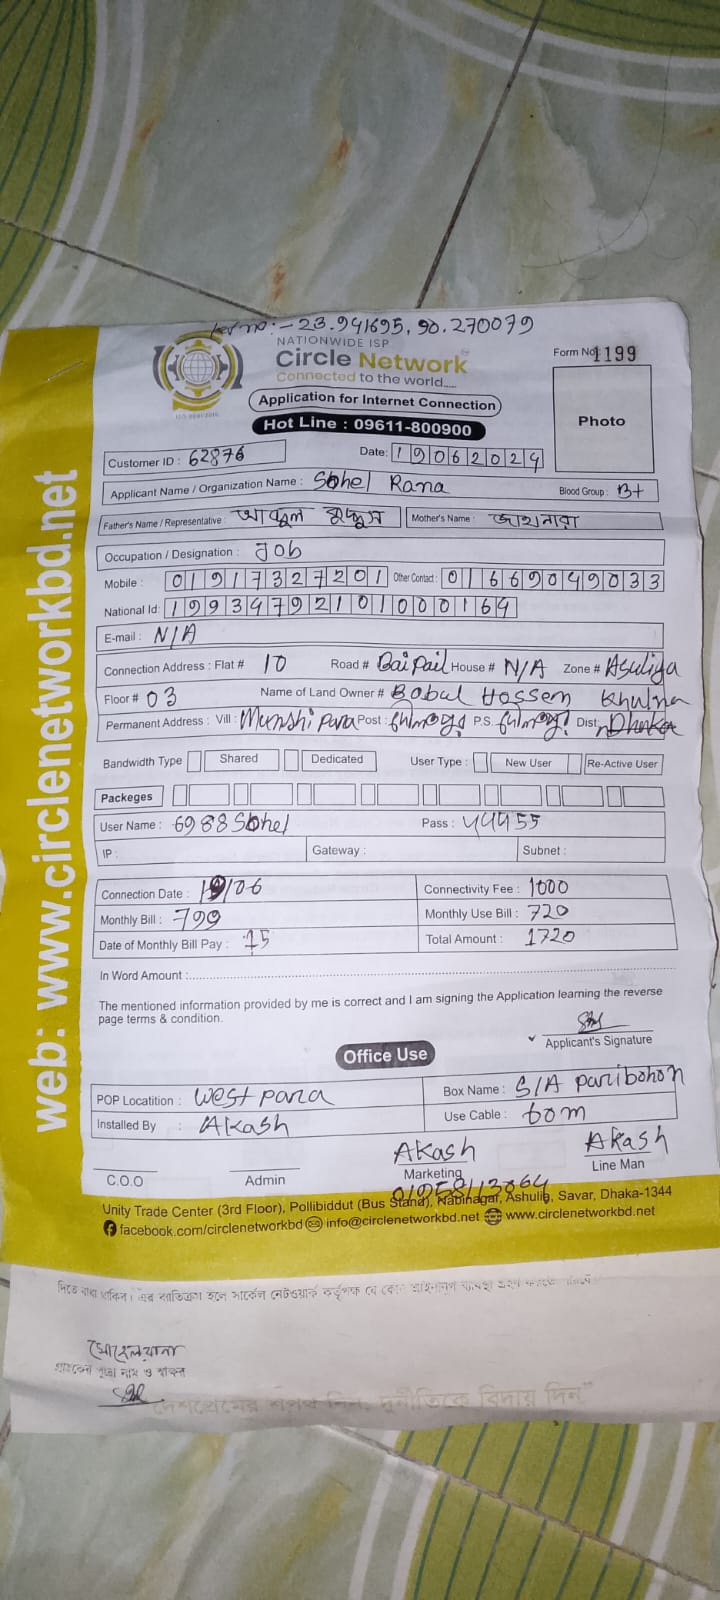 23.941695, 90.270079
NATIONWIDE ISP
Circle Network
Connected to the world.....
Form No. 1199
Application for Internet Connection
Hot Line : 09611-800900
Photo
Customer ID : 62876 Date: 19062024
Applicant Name / Organization Name : Sohel Rana Blood Group : B+
Father's Name / Representative : Mother's Name :
Occupation / Designation : Job
Mobile : 01917327201 Other Contact : 01669049033
National Id: 19934792101000164
E-mail : N/A
Connection Address : Flat # 10 Road # Baipail House # N/A Zone # Asuliya
Floor # 03 Name of Land Owner # Babul Hossem Khulna
Permanent Address : Vill : Munshi para Post : P.S. Dist. Dhaka
Bandwidth Type Shared Dedicated User Type : New User Re-Active User
Packeges
User Name : 6988Sohel Pass : 44455
IP : Gateway : Subnet :
Connection Date : 19/06 Connectivity Fee : 1000
Monthly Bill : 799 Monthly Use Bill : 720
Date of Monthly Bill Pay : 15 Total Amount : 1720
In Word Amount :
The mentioned information provided by me is correct and I am signing the Application learning the reverse
page terms & condition.
Applicant's Signature
Office Use
POP Locatition : West para Box Name : S/A paribohon
Installed By : Akash Use Cable : 60m
Akash Akash
C.O.O Admin Marketing Line Man
Unity Trade Center (3rd Floor), Pollibiddut (Bus Stand), Nabinagar, Ashulia, Savar, Dhaka-1344
facebook.com/circlenetworkbd info@circlenetworkbd.net www.circlenetworkbd.net
web: www.circlenetworkbd.net
দিতে বাধ্য থাকিব। এর ব্যতিক্রম হলে সার্কেল নেটওয়ার্ক কর্তৃপক্ষ যে কোন আইনানুগ ব্যবস্থা গ্রহণ করতে
সোহেল রানা
গ্রাহকের পুরো নাম ও স্বাক্ষর
দেশপ্রেমের শপথ নিন, দুর্নীতিকে বিদায় দিন"